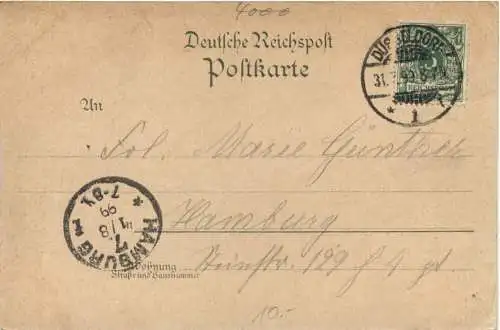 4000
Deutsche Reichspost
Postkarte
DÜSSELDORF
31.7.99
* 1
An
Frl. Marie Günther
Hamburg
HAMBURG 1
1/8
99
7-8V.
*
Wohnung
(Straße und Hausnummer)
189
4
10.-